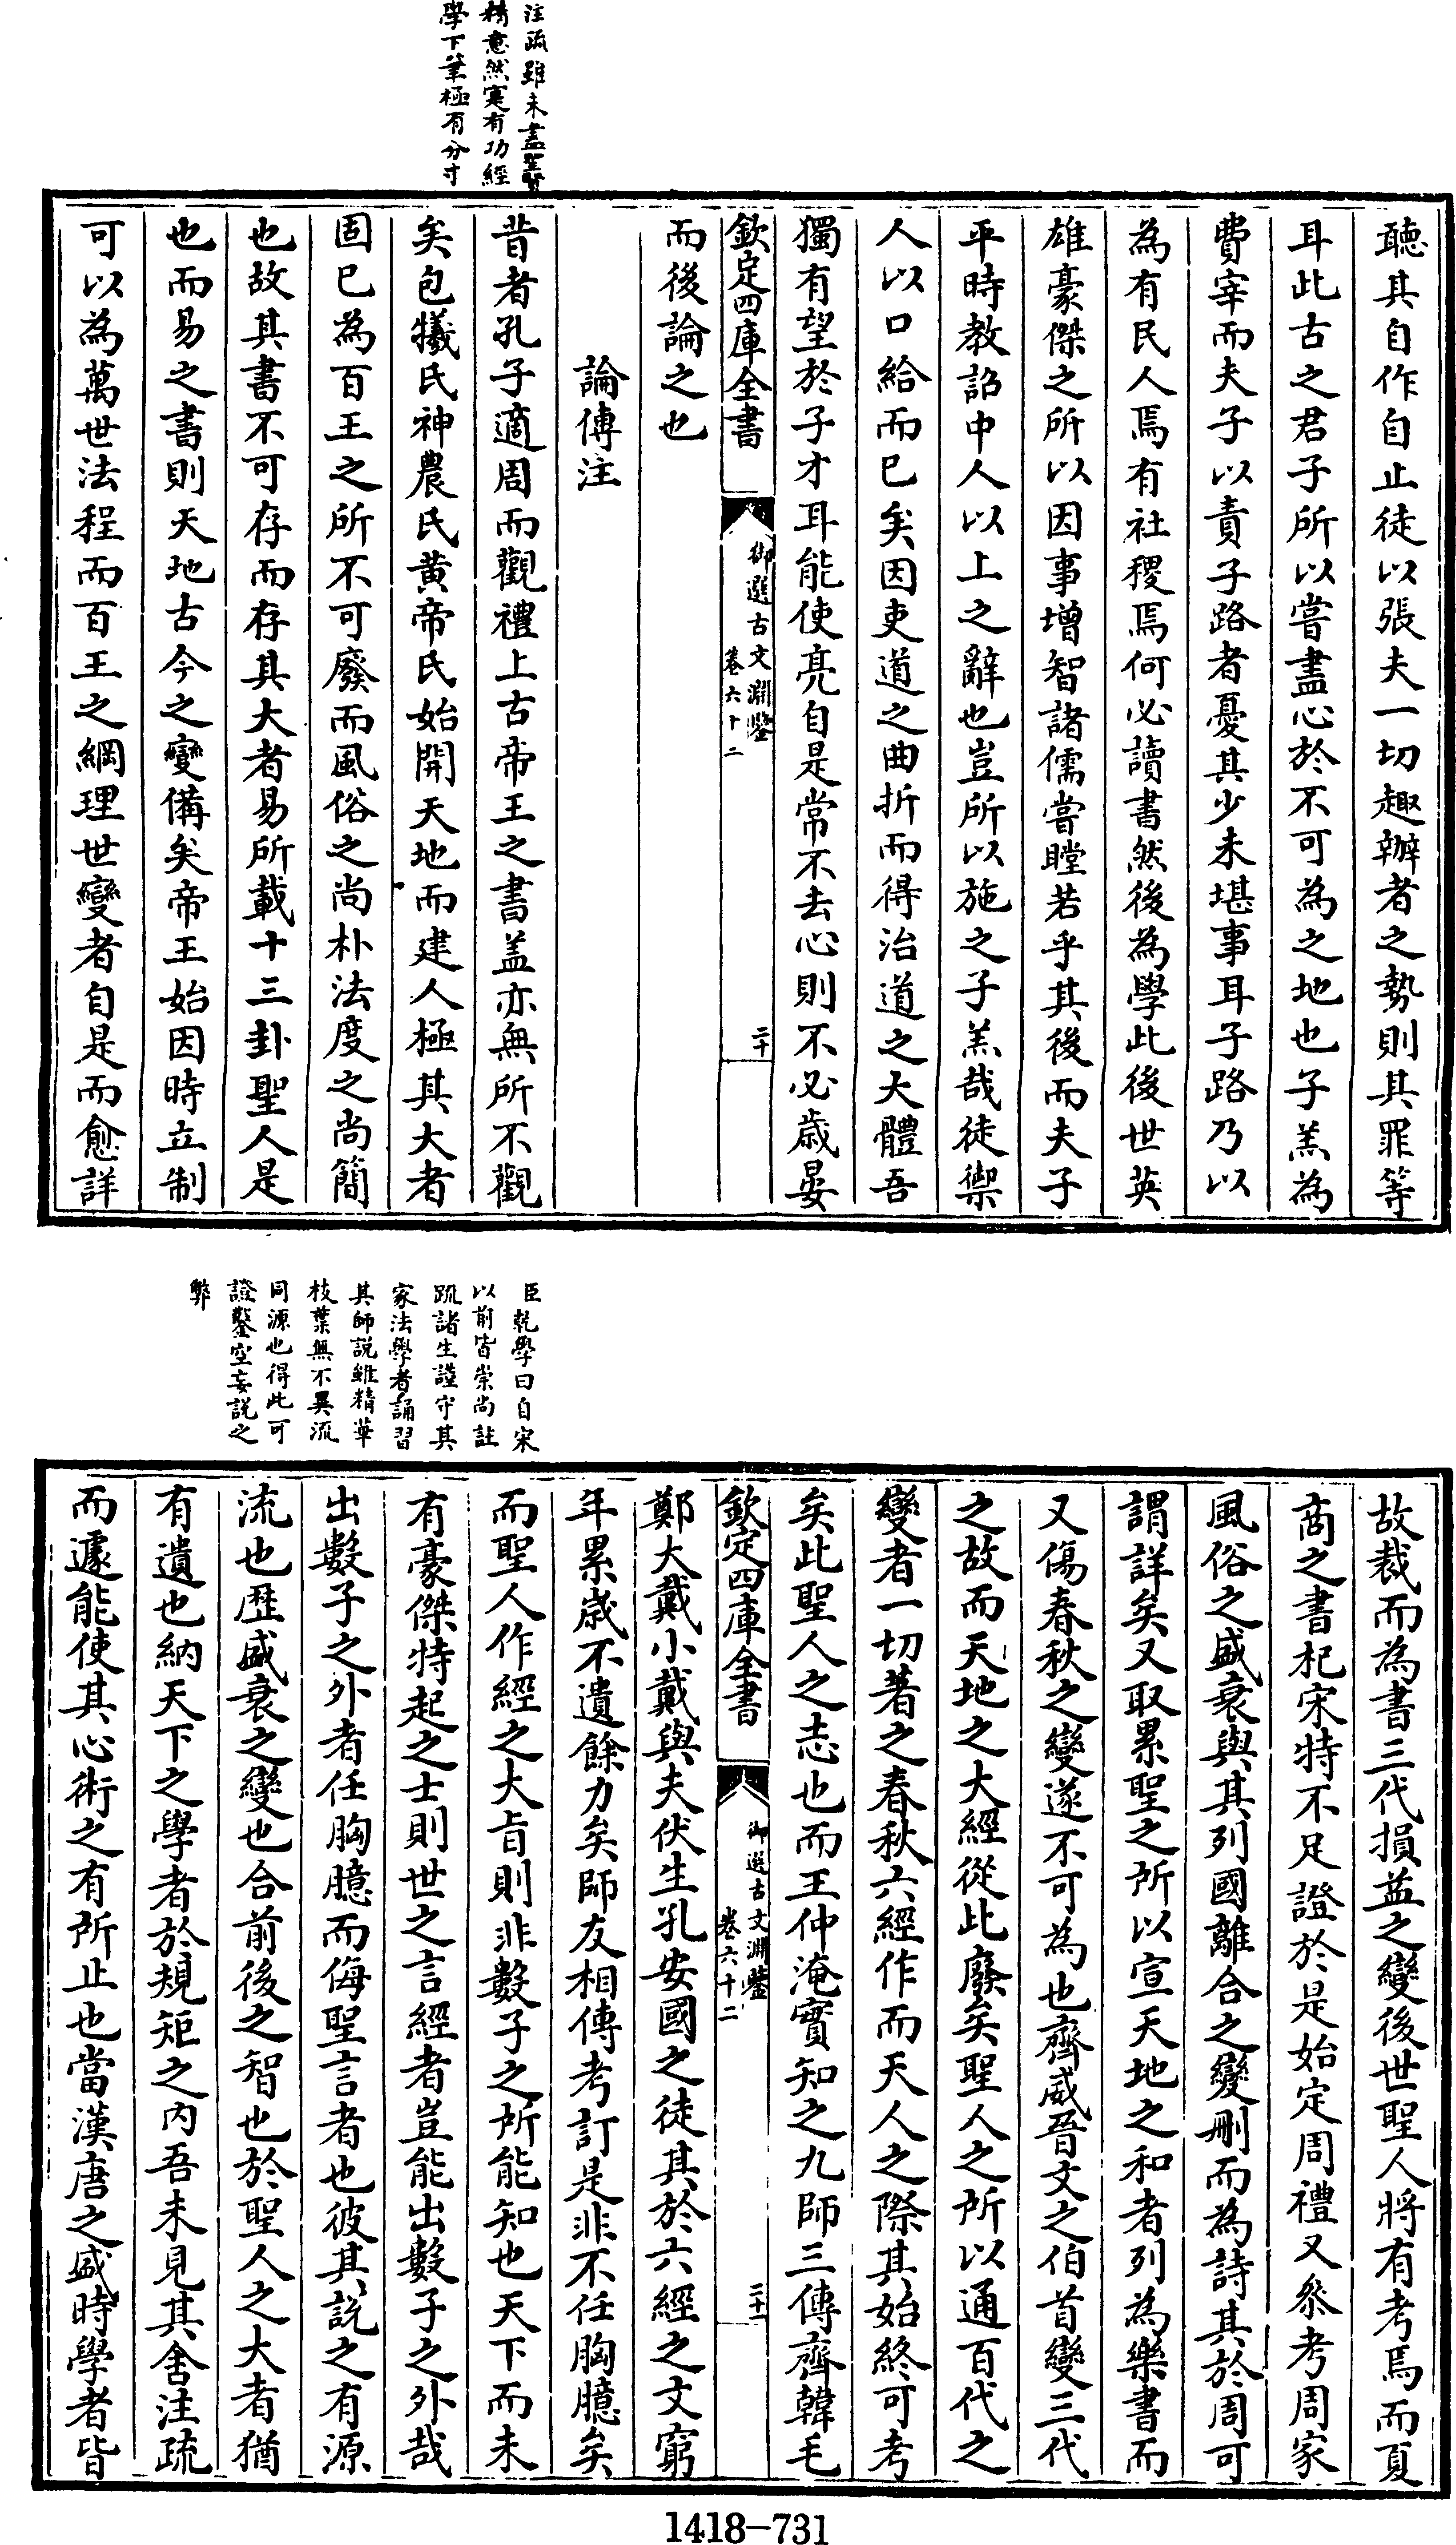 注疏雖未盡聖賢
精意然寔有功經
學下筆極有分寸
聽其自作自止徒以張夫一切趣辦者之勢則其罪等
耳此古之君子所以嘗盡心於不可為之地也子羔為
費宰而夫子以責子路者憂其少未堪事耳子路乃以
為有民人焉有社稷焉何必讀書然後為學此後世英
雄豪傑之所以因事增智諸儒嘗瞠若乎其後而夫子
平時教詔中人以上之辭也豈所以施之子羔哉徒禦
人以口給而已矣因吏道之曲折而得治道之大體吾
獨有望於子才耳能使亮自是常不去心則不必歲晏
欽定四庫全書
御選古文淵鑒
卷六十二
二十
而後論之也
論傳注
昔者孔子適周而觀禮上古帝王之書盖亦無所不觀
矣包犧氏神農氏黃帝氏始開天地而建人極其大者
固已為百王之所不可廢而風俗之尚朴法度之尚簡
也故其書不可存而存其大者易所載十三卦聖人是
也而易之書則天地古今之變備矣帝王始因時立制
可以為萬世法程而百王之綱理世變者自是而愈詳
臣乾學曰自宋
以前皆崇尚註
疏諸生謹守其
家法學者誦習
其師説雖精華
枝葉無不異流
同源也得此可
證鑿空妄説之
弊
故裁而為書三代損益之變後世聖人將有考焉而夏
商之書杞宋特不足證於是始定周禮又叅考周家
風俗之盛衰與其列國離合之變刪而為詩其於周可
謂詳矣又取累聖之所以宣天地之和者列為樂書而
又傷春秋之變遂不可為也齊威晉文之伯首變三代
之故而天地之大經從此廢矣聖人之所以通百代之
變者一切著之春秋六經作而天人之際其始終可考
矣此聖人之志也而王仲淹實知之九師三傳齊韓毛
欽定四庫全書
御選古文淵鑒
卷六十二
二十一
鄭大戴小戴與夫伏生孔安國之徒其於六經之文窮
年累歲不遺餘力矣師友相傳考訂是非不任胸臆矣
而聖人作經之大旨則非數子之所能知也天下而未
有豪傑特起之士則世之言經者豈能出數子之外哉
出數子之外者任胸臆而侮聖言者也彼其説之有源
流也歴盛衰之變也合前後之智也於聖人之大者猶
有遺也納天下之學者於規矩之內吾未見其舍注疏
而遽能使其心術之有所止也當漢唐之盛時學者皆
1418-731